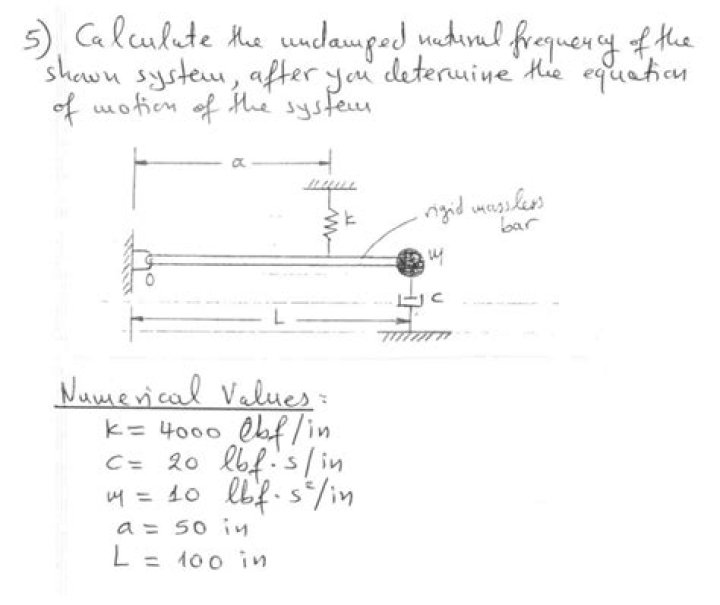 5) Calculate the undamped natural frequency of the
shown system, after you determine the equation
of motion of the system
a
k
rigid massless
bar
m
O
c
L
Numerical Values:
k = 4000 lbf/in
C = 20 lbf.s/in
m = 10 lbf.s²/in
a = 50 in
L = 100 in